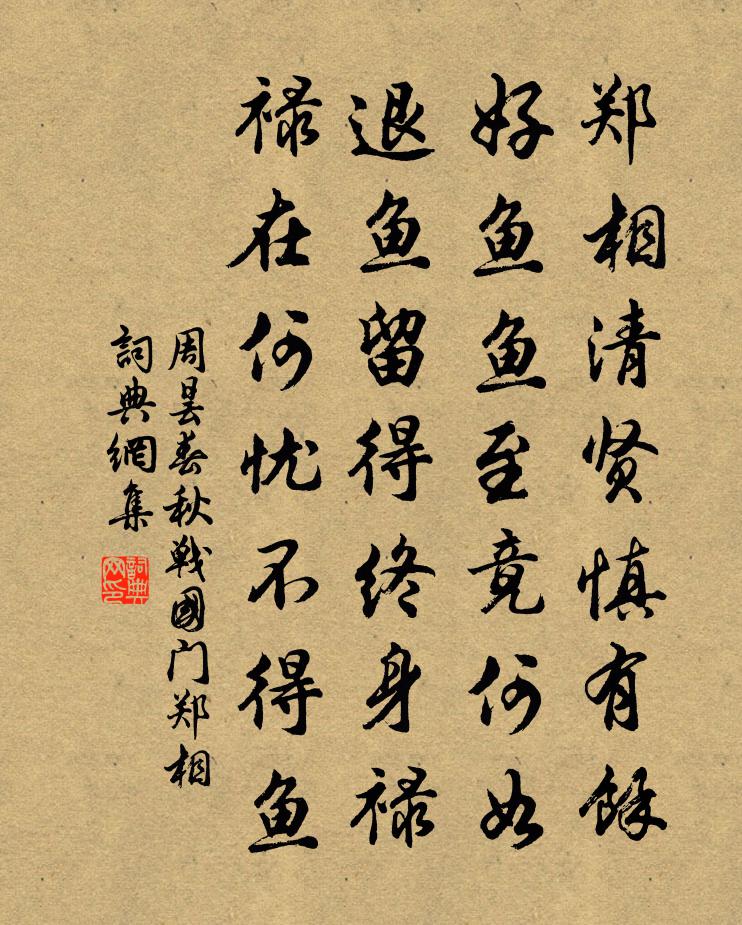 郑相清贤慎有馀
好鱼鱼至竟何如
退鱼留得终身禄
禄在何忧不得鱼
周昙春秋戦國门郑相
詞典網集
詞典网印